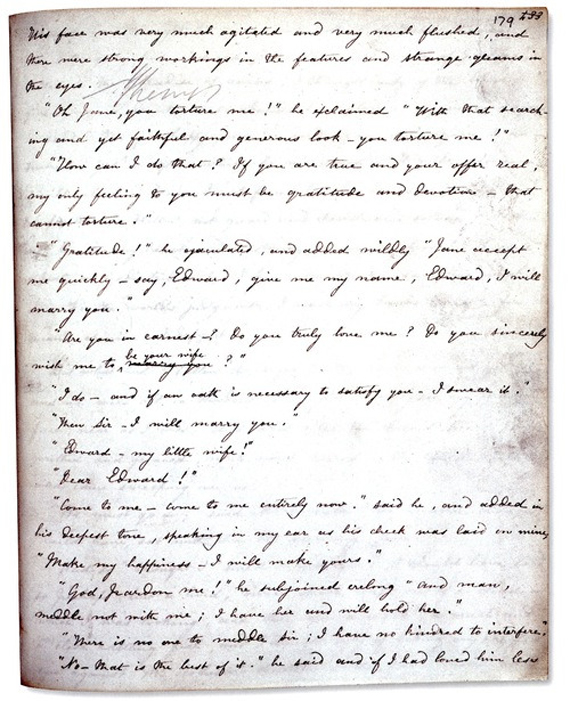 179 233
His face was very much agitated and very much flushed, and
there were strong workings in the features and strange gleams in
the eyes.
"Oh Jane, you torture me!" he exclaimed "With that search-
ing and yet faithful and generous look - you torture me!"
"How can I do that? If you are true and your offer real,
my only feeling to you must be gratitude and devotion - that
cannot torture."
"Gratitude!" he ejaculated, and added wildly "Jane accept
me quickly - say, Edward, give me my name, Edward, I will
marry you."
"Are you in earnest -? Do you truly love me? Do you sincerely
be your wife
wish me to marry you ?"
"I do - and if an oath is necessary to satisfy you - I swear it."
"Then Sir - I will marry you."
"Edward - my little wife!"
"Dear Edward!"
"Come to me - come to me entirely now." said he, and added in
his deepest tone, speaking in my ear as his cheek was laid on mine,
"Make my happiness - I will make yours."
"God, pardon me!" he subjoined erelong "and man,
meddle not with me; I have her and will hold her."
"There is no one to meddle sir; I have no kindred to interfere."
"No - that is the best of it." he said and if I had loved him less